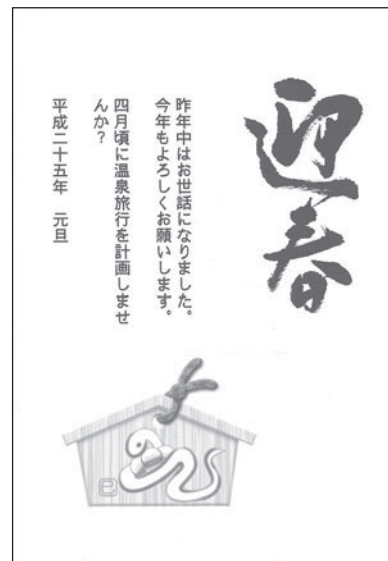 迎春
昨年中はお世話になりました。
今年もよろしくお願いします。
四月頃に温泉旅行を計画しませ
んか？
平成二十五年　元旦
巳